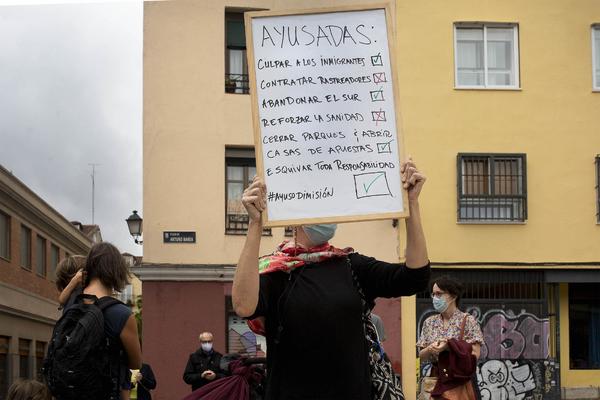 AYUSADAS:
CULPAR A LOS INMIGRANTES
CONTRATAR RASTREADORES
ABANDONAR EL SUR
REFORZAR LA SANIDAD
CERRAR PARQUES Y ABRIR
CASAS DE APUESTAS
E SQUIVAR TODA RESPONSABILIDAD
#AYUSODIMISIÓN
ARTURO BAREA